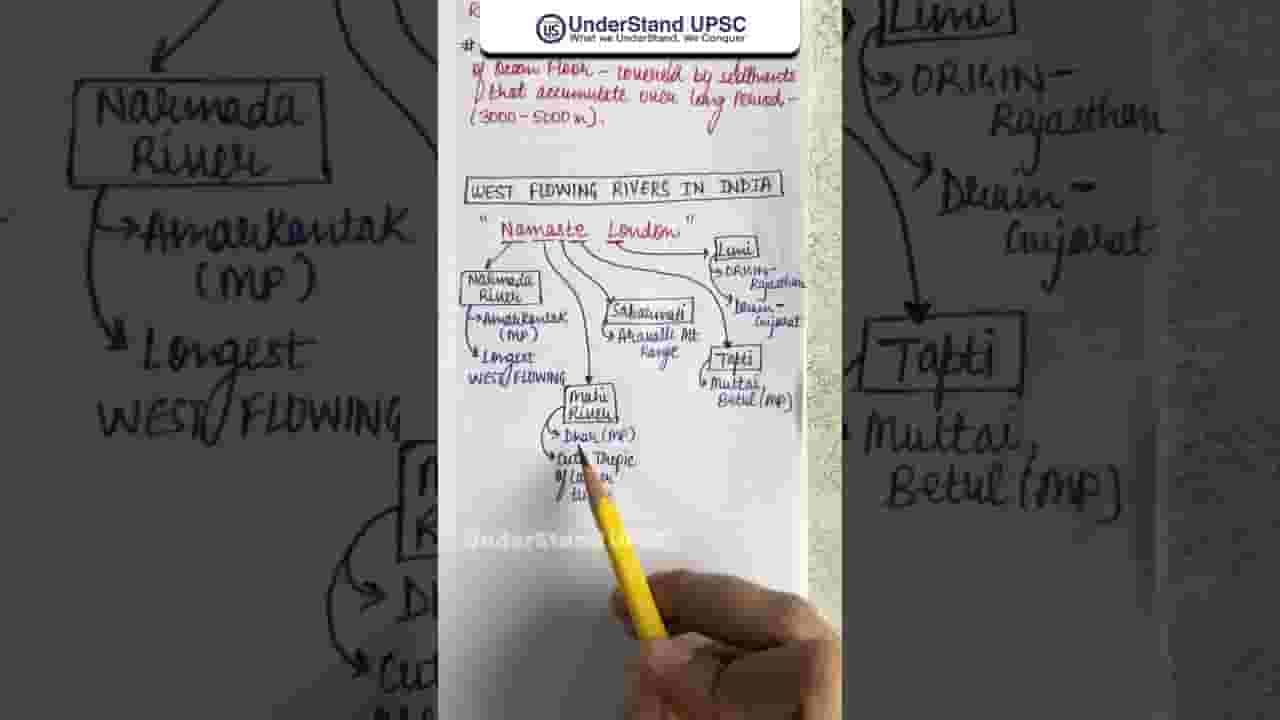 UnderStand UPSC
What we UnderStand, We Conquer
#
of Ocean Floor - covered by sediments
that accumulate over long period -
(3000 - 5000 m).
WEST FLOWING RIVERS IN INDIA
"Namaste London"
Narmada
River
Amarkantak
(MP)
Longest
WEST FLOWING
Mahi
River
Dhar (MP)
Cuts Tropic
of
Sabarmati
Aravalli Mt
Range
Tapti
Multai,
Betul (MP)
Luni
ORIGIN-
Rajasthan
Drain-
Gujarat
UnderStand UPSC
Narmada
River
Amarkantak
(MP)
Longest
WEST FLOWING
Luni
ORIGIN-
Rajasthan
Drain-
Gujarat
Tapti
Multai,
Betul (MP)